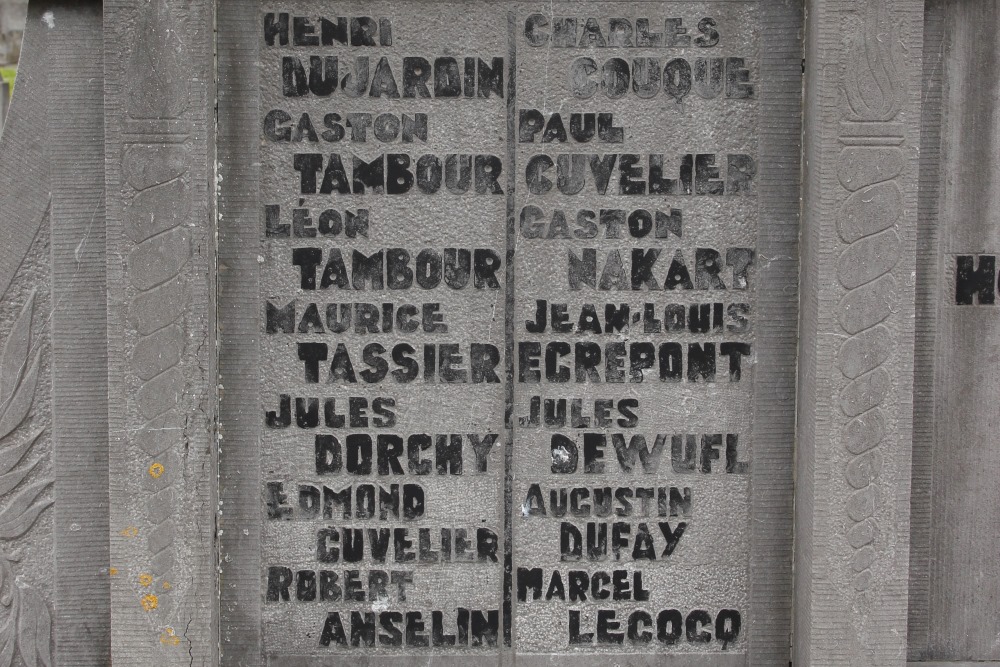 HENRI
DUJARDIN
GASTON
TAMBOUR
LÉON
TAMBOUR
MAURICE
TASSIER
JULES
DORCHY
EDMOND
CUVELIER
ROBERT
ANSELIN
CHARLES
COUQUE
PAUL
CUVELIER
GASTON
NAKART
JEAN-LOUIS
ECREPONT
JULES
DEWUFL
AUGUSTIN
DUFAY
MARCEL
LECOCQ